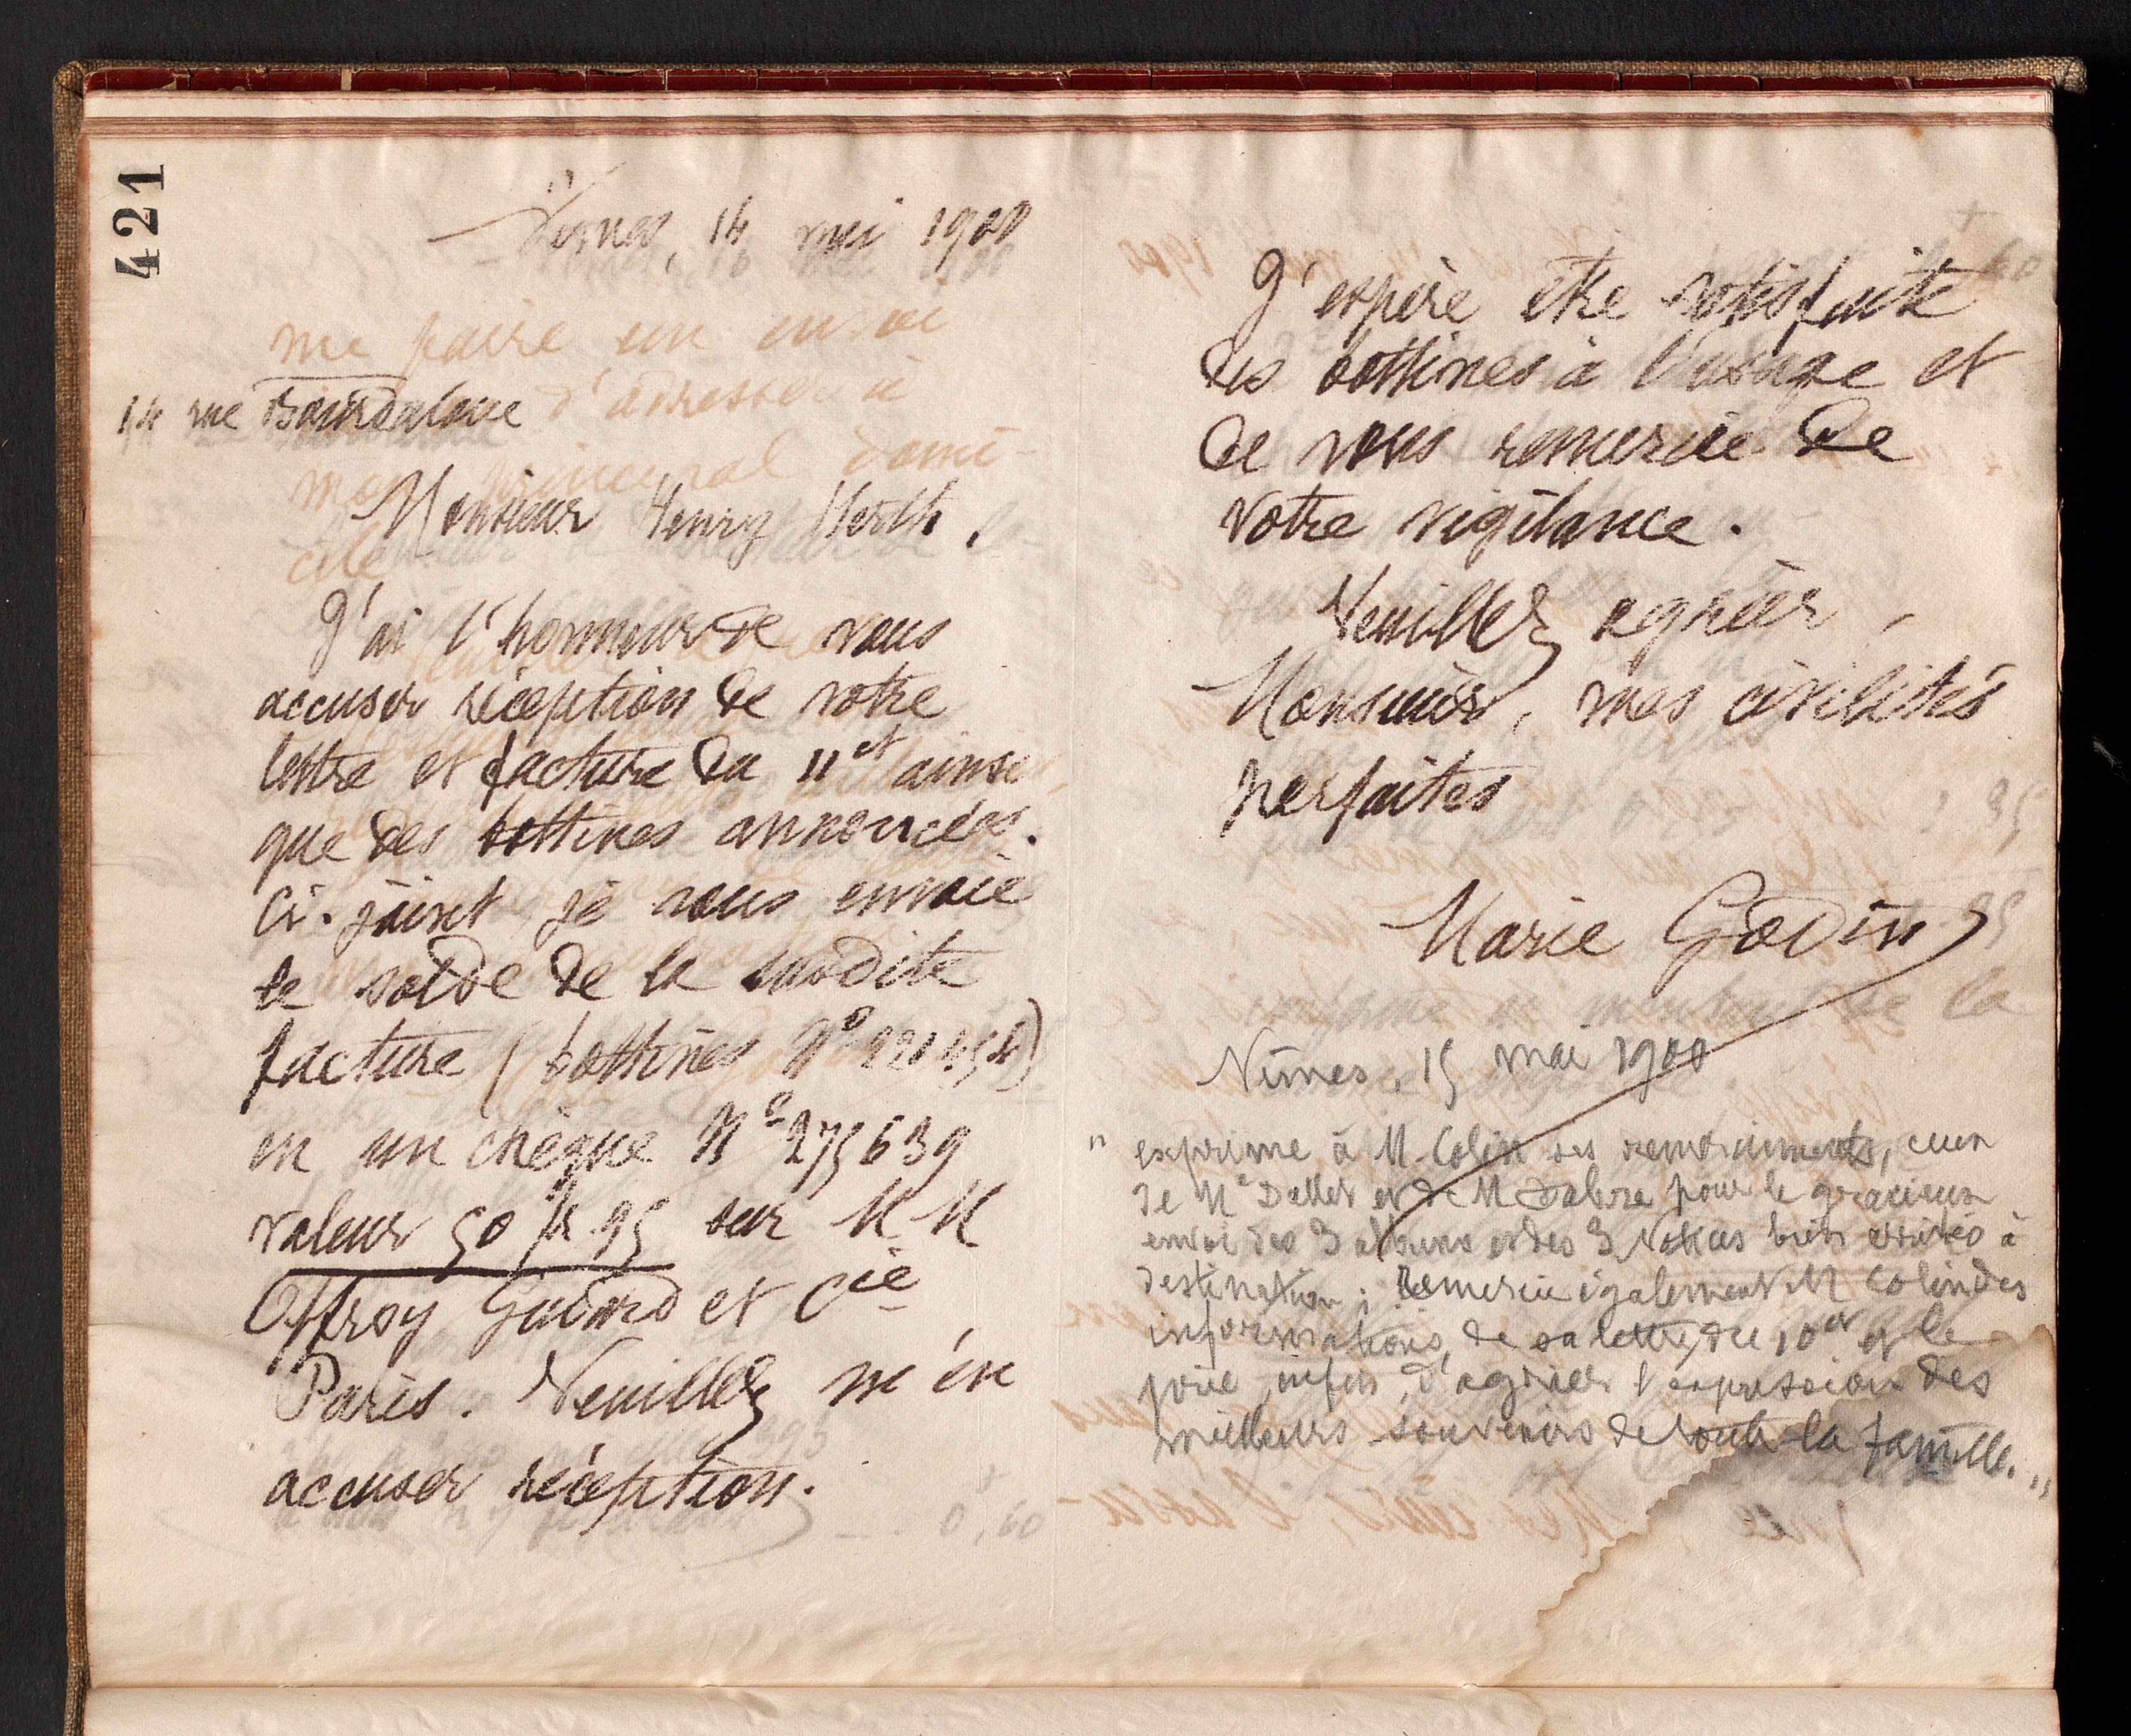 421
Nîmes, 14 mai 1900
14 rue Bourdaloue
Monsieur Henry Herth,
J'ai l'honneur de vous
accuser réception de votre
lettre et facture du 11 et ainsi
que des bottines annoncées.
Ci-joint je vous envoie
le solde de la susdite
facture (bottines N°
en un chèque N° 275639
valeur 50 fr 95 sur M M
Offroy Guiard et Cie
Paris. Veuillez m'en
accuser réception.
J'espère être satisfaite
des bottines à l'usage et
de vous remercie de
votre vigilance.
Veuillez agréer,
Monsieur, mes civilités
parfaites
Marie Godin
Nîmes, 15 mai 1900
" exprime à M. Colin ses remerciements, ceux
de Me Dallet et de M Fabre pour le gracieux
envoi des 3 albums et des 3 Notices bien arrivés à
destination ; Remercie également M Colin des
informations de sa lettre du 10 ct et le
prie, enfin, d'agréer l'expression des
meilleurs souvenirs de toute la famille. "